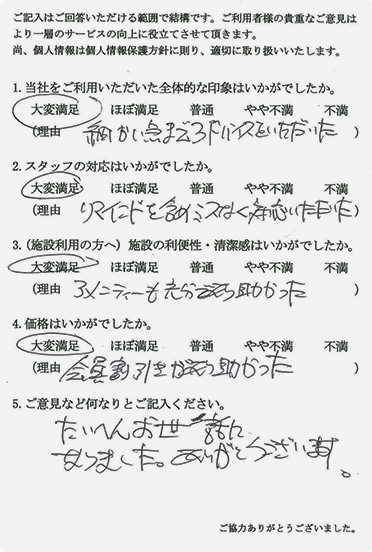 ご記入はご回答いただける範囲で結構です。ご利用者様の貴重なご意見は
より一層のサービスの向上に役立てさせて頂きます。
尚、個人情報は個人情報保護方針に則り、適切に取り扱いいたします。
1. 当社をご利用いただいた全体的な印象はいかがでしたか。
大変満足 ほぼ満足 普通 やや不満 不満
(理由 細かい点までアドバイスをいただいた )
2. スタッフの対応はいかがでしたか。
大変満足 ほぼ満足 普通 やや不満 不満
(理由 リマインドを含めミスなく対応いただいた )
3. (施設利用の方へ) 施設の利便性・清潔感はいかがでしたか。
大変満足 ほぼ満足 普通 やや不満 不満
(理由 アメニティーも充分であり助かった )
4. 価格はいかがでしたか。
大変満足 ほぼ満足 普通 やや不満 不満
(理由 会員割引きがあり助かった )
5. ご意見など何なりとご記入ください。
たいへんお世話に
なりました。ありがとうございます。
ご協力ありがとうございました。